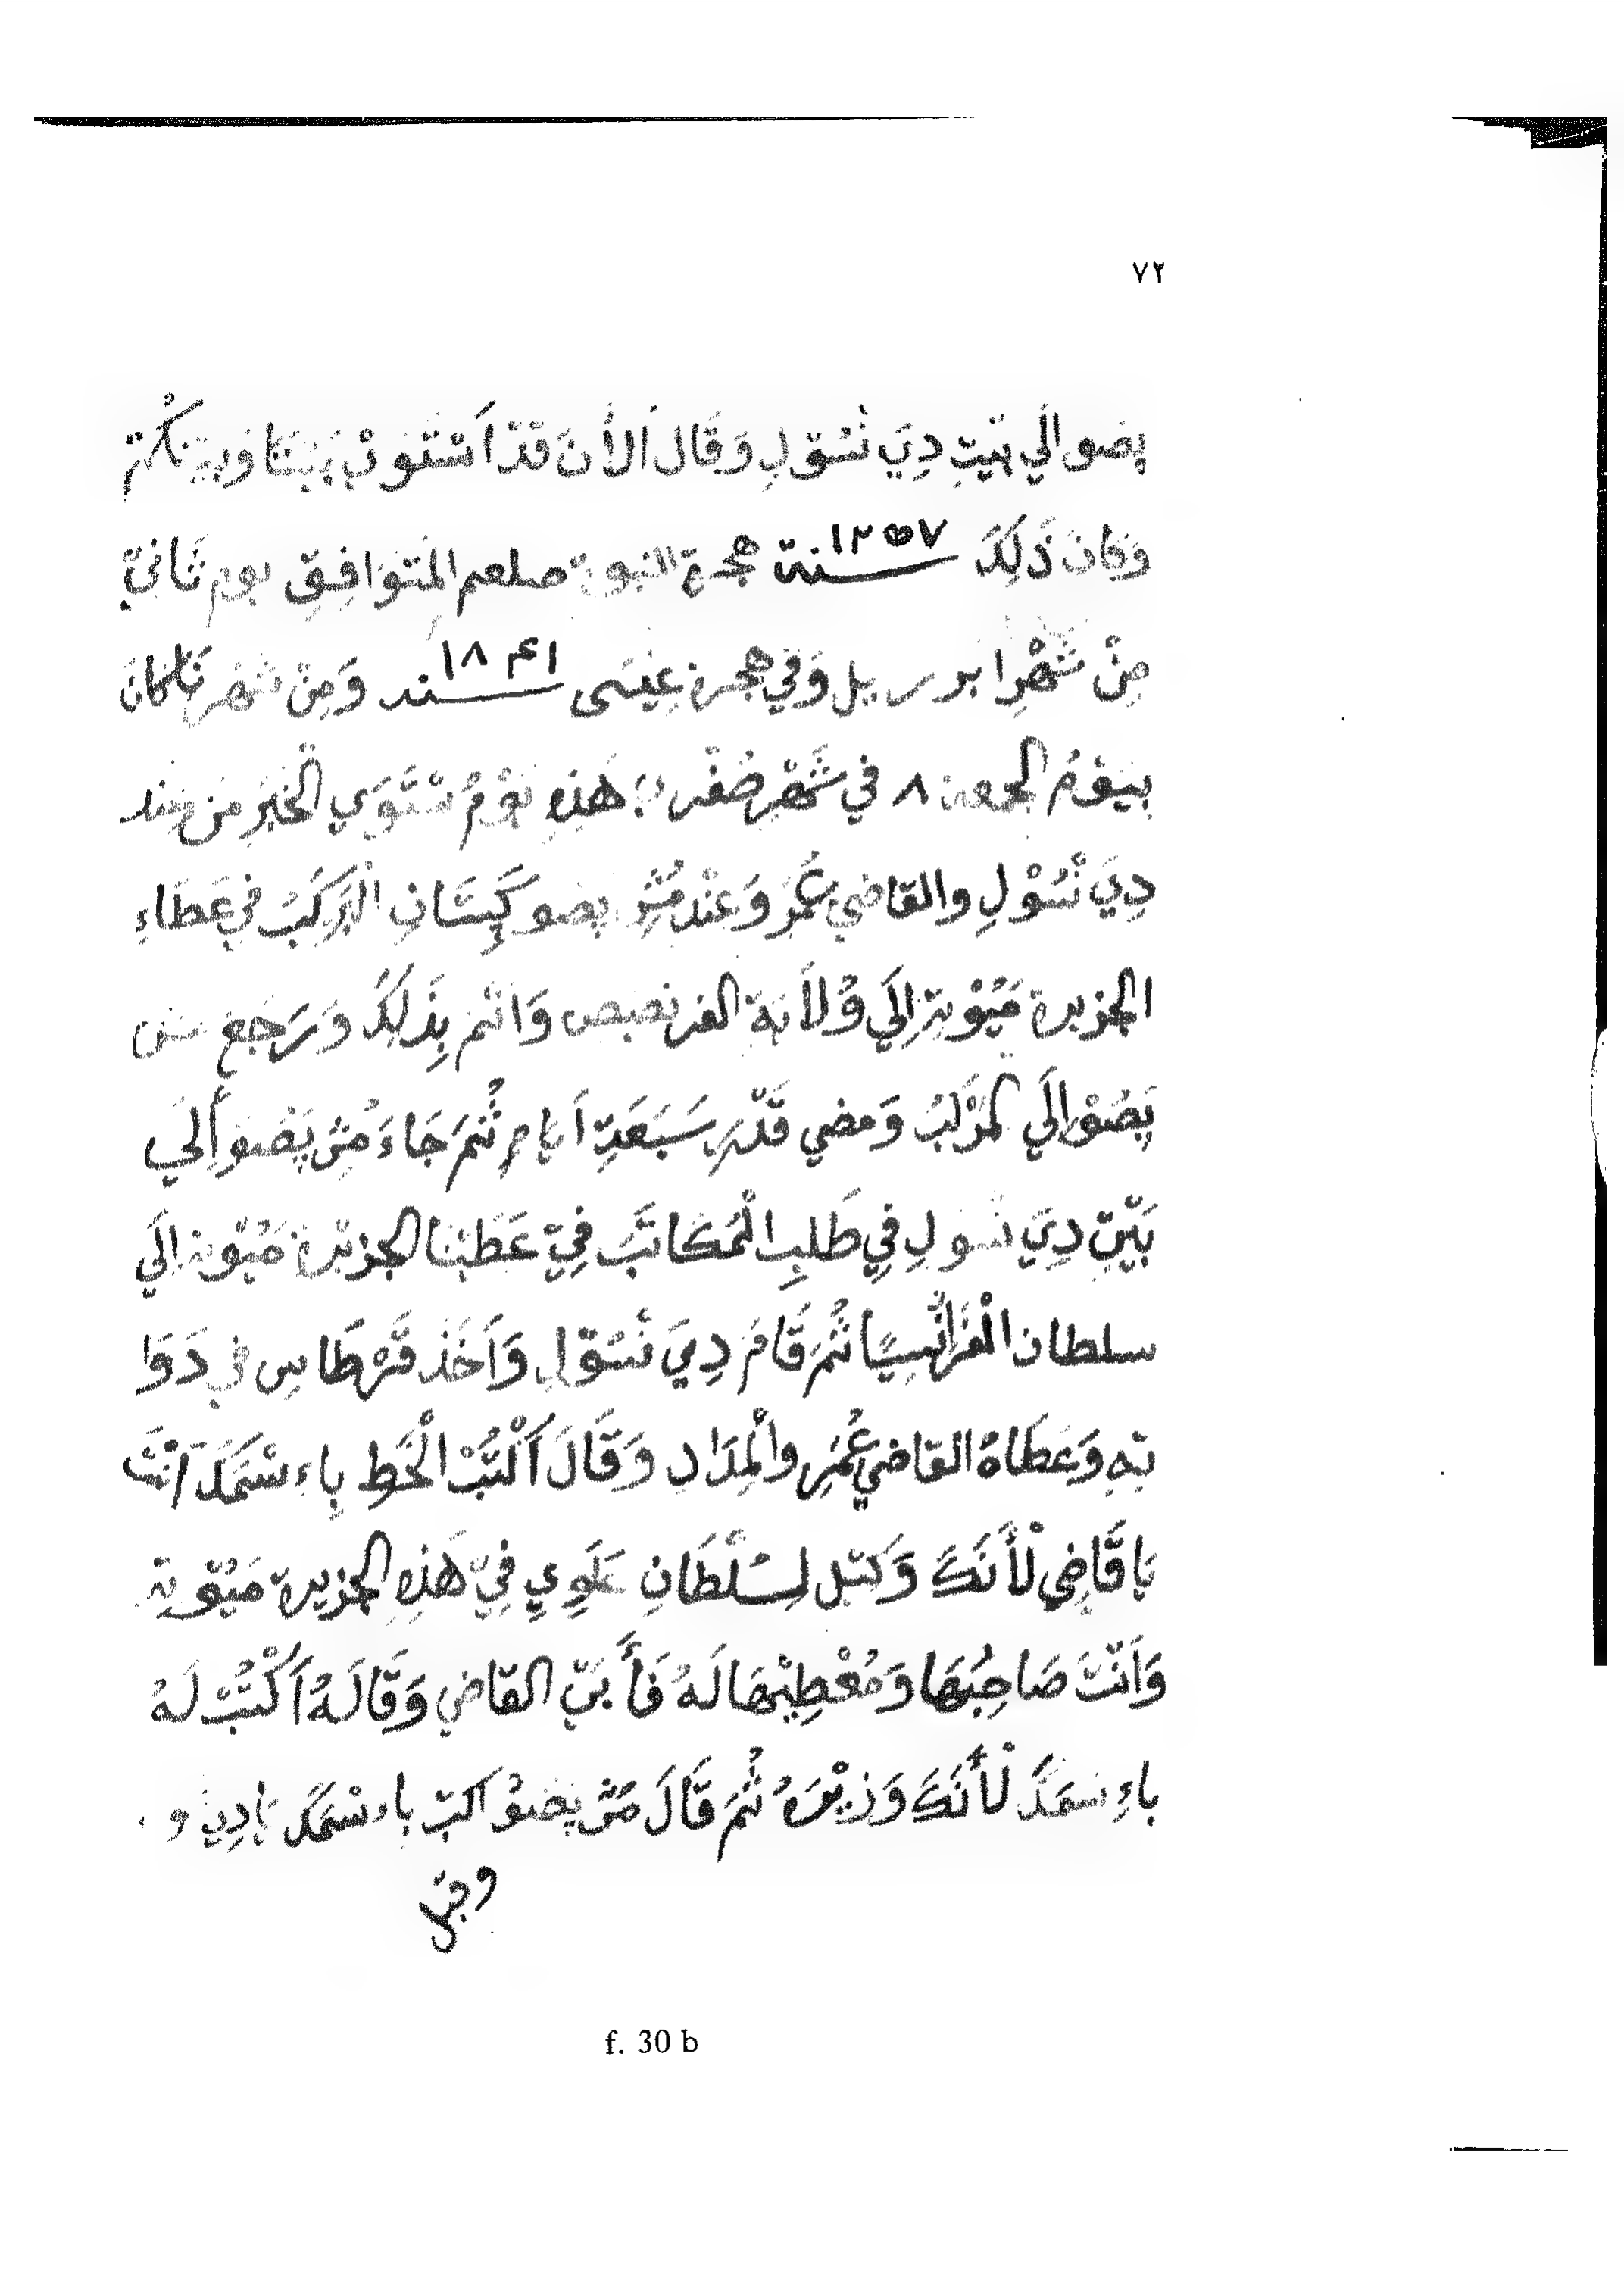 ٧٢
پضو الَي بَيْتِ دِيَ نْسُوْلِ وَقَالَ اَلأٰنَ قَدْ اَسْتَوَيْ بَيْنَنَا وَبَيْنَكُمْ
وَكَانَ ذَلِكَ سنة ١٢٥٧ هجرة النبوية صلعم المِتَوَافِقِ يوم ثَانِيْ
مِنْ شَهْرِ ابر ريل وَفِي هجرة عِيْسَى سنه ١٨٤١ وَمِنْ شَهْر نَا كَانَ
بِيَوْمُ الجمعة ٨ فِي شَهْرِ صَفَر هَذِهِ يَوْمُ سْتَوَي الخَبَرِ مِنْ عِند
دِيَ نْسُوْلِ والقاضي عُمَرَ وَعِنْد مُسْ پضو كَپِتَانِ الْمَرْكَبُ فِي عَطَاءِ
الجزيرة مَيُوْتِة اِلَي وُلاَيَةَ الفرنصيص وَاَنْتُم بِذَلِكَ وَرَجَعَ مس
پَضُوْ اِلَي لمَرْكَبُ وَمضي قَدْرِ سَبَعَةِ اَيَامِ ثُمَ جَاءَ مُسْ پَضُو اِلَي
بَيْتِ دِيَ نْسُولِ فِي طَلِبِ الْمُكَاتَبُ فِيْ عَطَيْنَا الجزيْرة مَيُوْتة اِلَي
سلطان الْفَرَانْسِيسَا ثُمَ قَامَ دِيَ نْسُوْلِ وَاَخَذَ قَرْطَاسِ فِي دَوَا
تِهِ وَعَطَاهُ القاضي عُمَرِ والْمِدَادِ وَقَالَ اَكْتُبْ الْخَطِ بِاءِ سْمَكَ اَنْتَ
يَا قَاضِي لْأَنَكَ وَكِيْل لِسُلْطَانِ عَلَوِي فِيْ هَذِهِ الجزيرة مَيُوْتِة
وَاَنْتَ صَاحِبُهَا وَمُعْطِيْهَا لَهُ فَأَبَيْ القاضي وَقَالَهُ اَكْتُبْ لَهُ
باءِ سْمَكَ لْأَنَكَ وَزِيْرَهُ ثُمَ قَالَ مُسْ پَضُوْ اكتبْ بِاء سْمَكَ يَادِيَ و
وقيل
f. 30 b